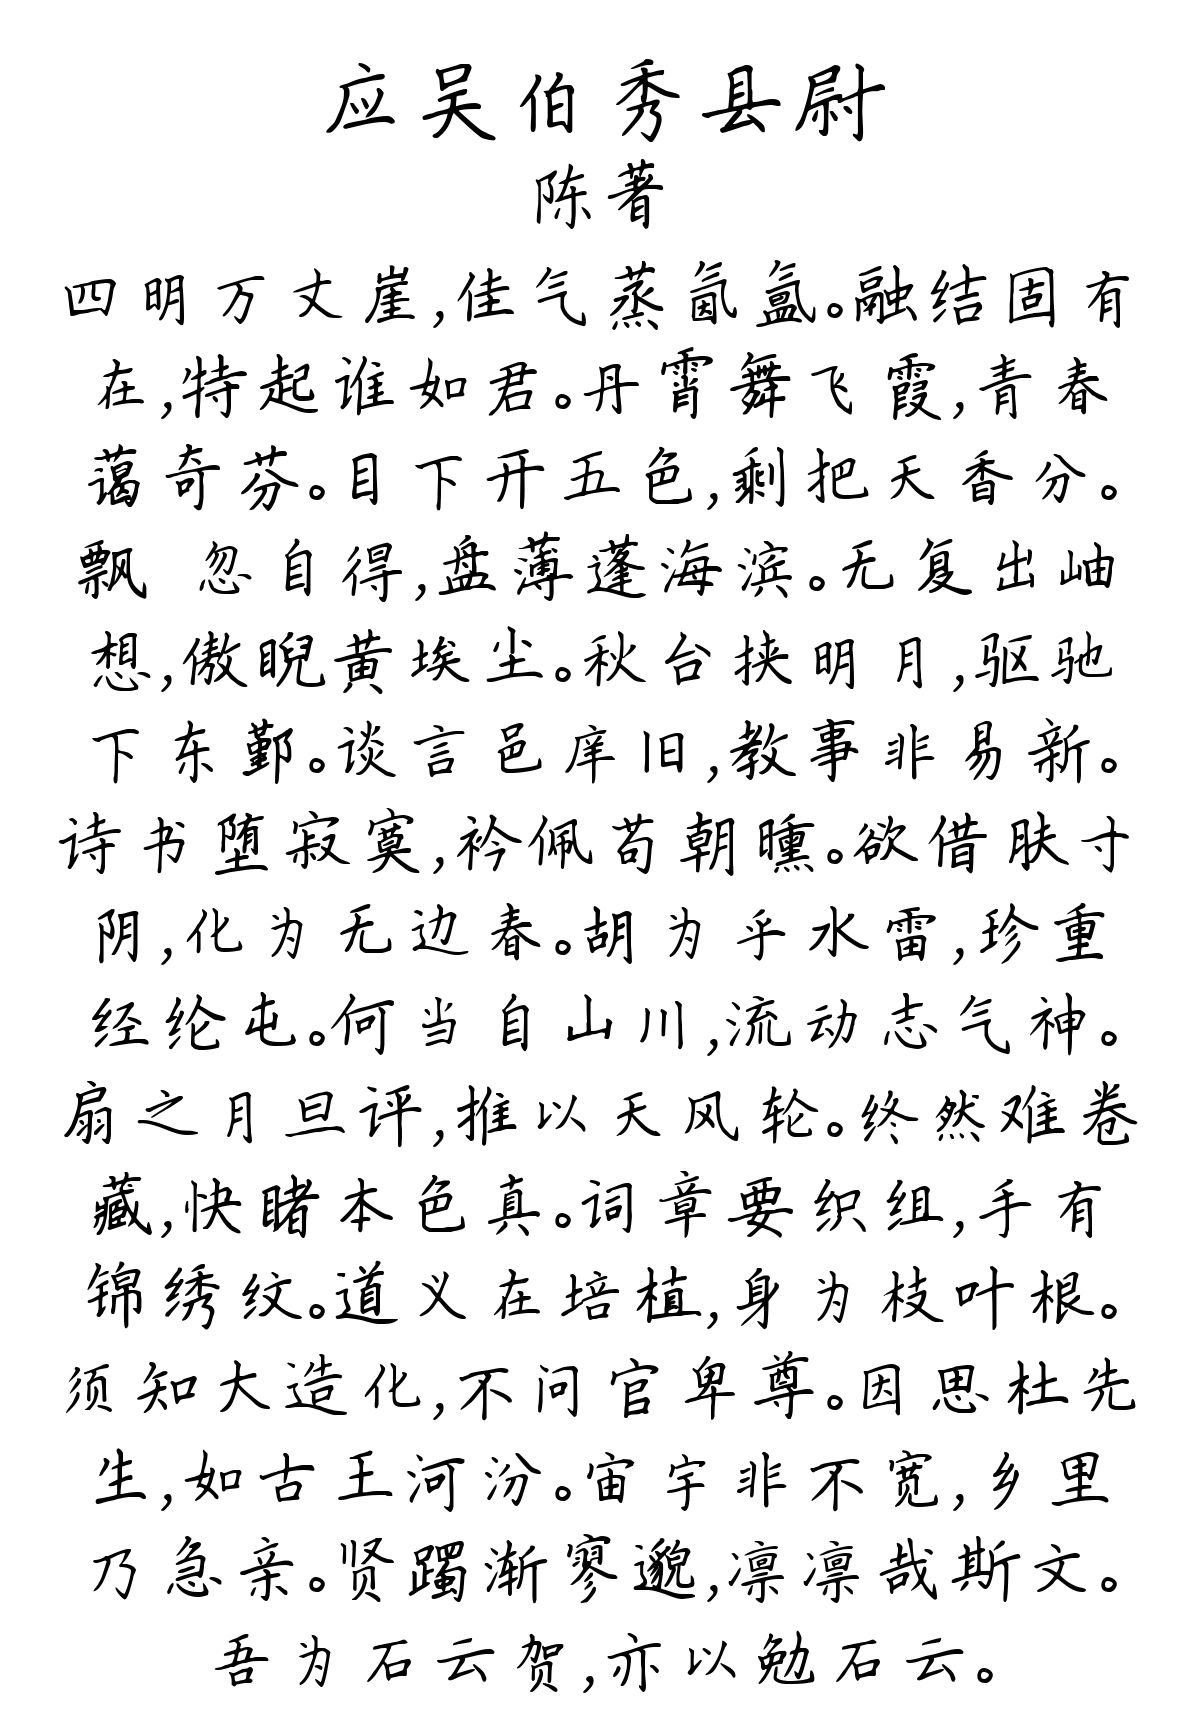 应吴伯秀县尉
陈著
四明万丈崖,佳气蒸氤氲。融结固有
在,特起谁如君。丹霄舞飞霞,青春
蔼奇芬。目下开五色,剩把天香分。
飘 忽自得,盘薄蓬海滨。无复出岫
想,傲睨黄埃尘。秋台挟明月,驱驰
下东鄞。谈言邑庠旧,教事非易新。
诗书堕寂寞,衿佩苟朝曛。欲借肤寸
阴,化为无边春。胡为乎水雷,珍重
经纶屯。何当自山川,流动志气神。
扇之月旦评,推以天风轮。终然难卷
藏,快睹本色真。词章要织组,手有
锦绣纹。道义在培植,身为枝叶根。
须知大造化,不问官卑尊。因思杜先
生,如古王河汾。宙宇非不宽,乡里
乃急亲。贤躅渐寥邈,凛凛哉斯文。
吾为石云贺,亦以勉石云。